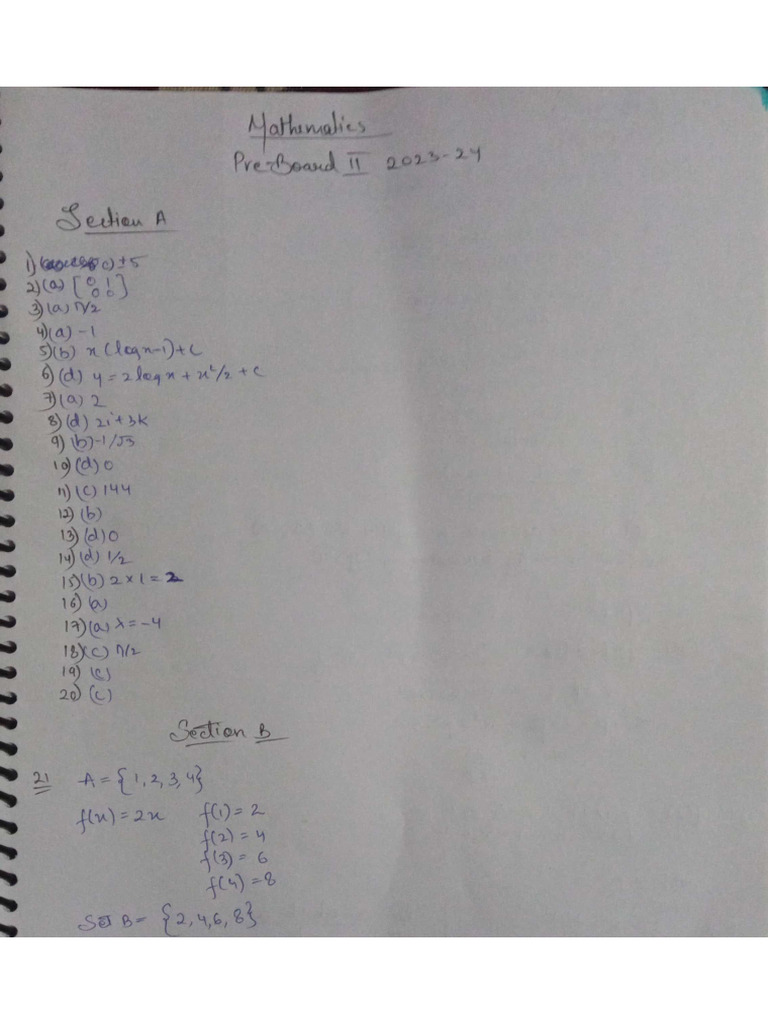 Mathematics
Pre-Board II 2023-24
Section A
1) c) ±5
2) (a) [0 1
0 0]
3) (a) π/2
4) (a) -1
5) (b) x(logx-1)+c
6) (d) y = 2logx + x²/2 + c
7) (a) 2
8) (d) 2i + 3k
9) (b) -1/√3
10) (d) 0
11) (c) 144
12) (b)
13) (d) 0
14) (d) 1/2
15) (b) 2 × 1 = 2
16) (a)
17) (a) λ = -4
18) (c) π/2
19) (c)
20) (c)
Section B
21 A = {1, 2, 3, 4}
f(x) = 2x f(1) = 2
f(2) = 4
f(3) = 6
f(4) = 8
Set B = {2, 4, 6, 8}